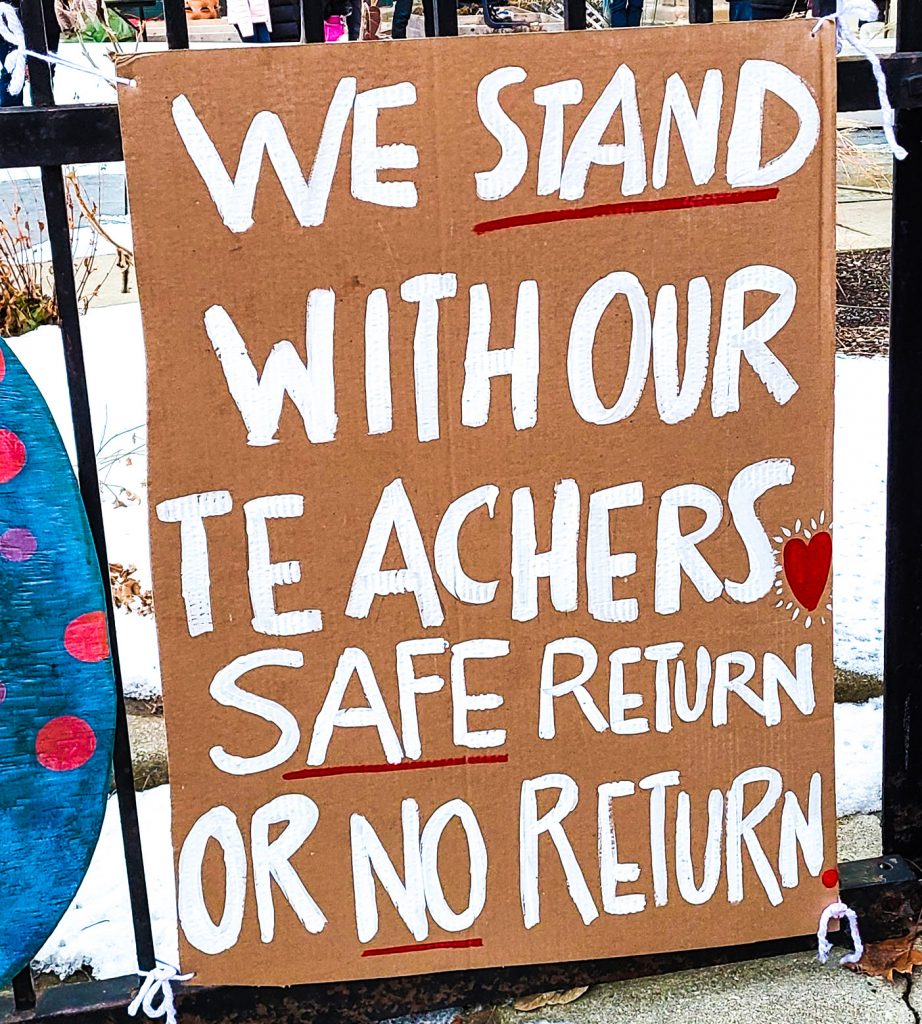 WE STAND
WITH OUR
TEACHERS
SAFE RETURN
OR NO RETURN.